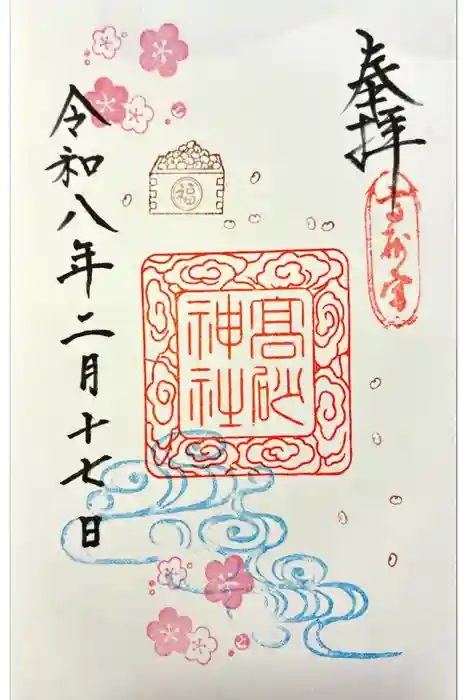 奉拝
高砂宮
福
高砂
神社
令和八年二月十七日